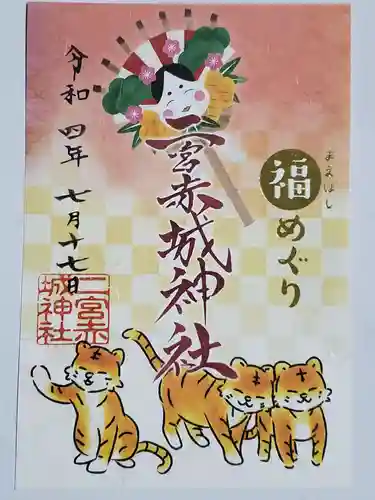 まえばし
福めぐり
二宮赤城神社
令和四年七月十七日
二宮赤
城神社